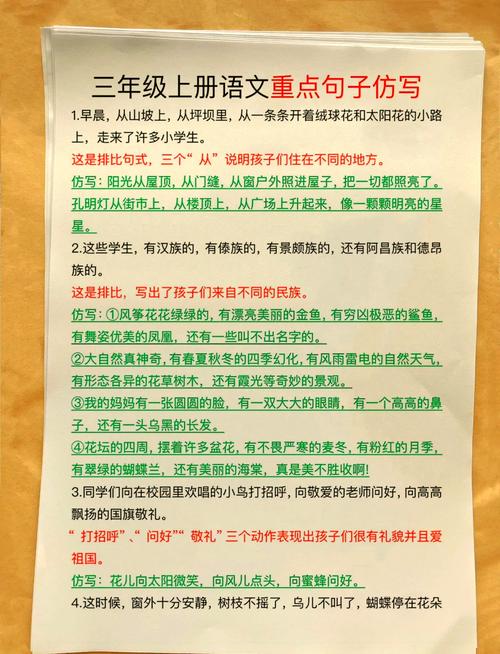 三年级上册语文重点句子仿写
1.早晨，从山坡上，从坪坝里，从一条条开着绒球花和太阳花的小路
上，走来了许多小学生。
这是排比句式，三个“从”说明孩子们住在不同的地方。
仿写：阳光从屋顶，从门缝，从窗户外照进屋子，把一切都照亮了。
孔明灯从街市上，从楼顶上，从广场上升起来，像一颗颗明亮的星
星。
2.这些学生，有汉族的，有傣族的，有景颇族的，还有阿昌族和德昂
族的。
这是排比，写出了孩子们来自不同的民族。
仿写：①风筝花花绿绿的，有漂亮美丽的金鱼，有穷凶极恶的鲨鱼，
有舞姿优美的凤凰，还有一些叫不出名字的。
②大自然真神奇，有春夏秋冬的四季幻化，有风雨雷电的自然天气，
有形态各异的花草树木，还有霞光等奇妙的景观。
③我的妈妈有一张圆圆的脸，有一双大大的眼睛，有一个高高的鼻
子，还有一头乌黑的长发。
④花坛的四周，摆着许多盆花，有不畏严寒的麦冬，有粉红的月季，
有翠绿的蝴蝶兰，还有美丽的海棠，真是美不胜收啊!
3.同学们向在校园里欢唱的小鸟打招呼，向敬爱的老师问好，向高高
飘扬的国旗敬礼。
“打招呼”、“问好”“敬礼”三个动作表现出孩子们很有礼貌并且爱
祖国。
仿写：花儿向太阳微笑，向风儿点头，向蜜蜂问好。
4.这时候，窗外十分安静，树枝不摇了，鸟儿不叫了，蝴蝶停在花朵